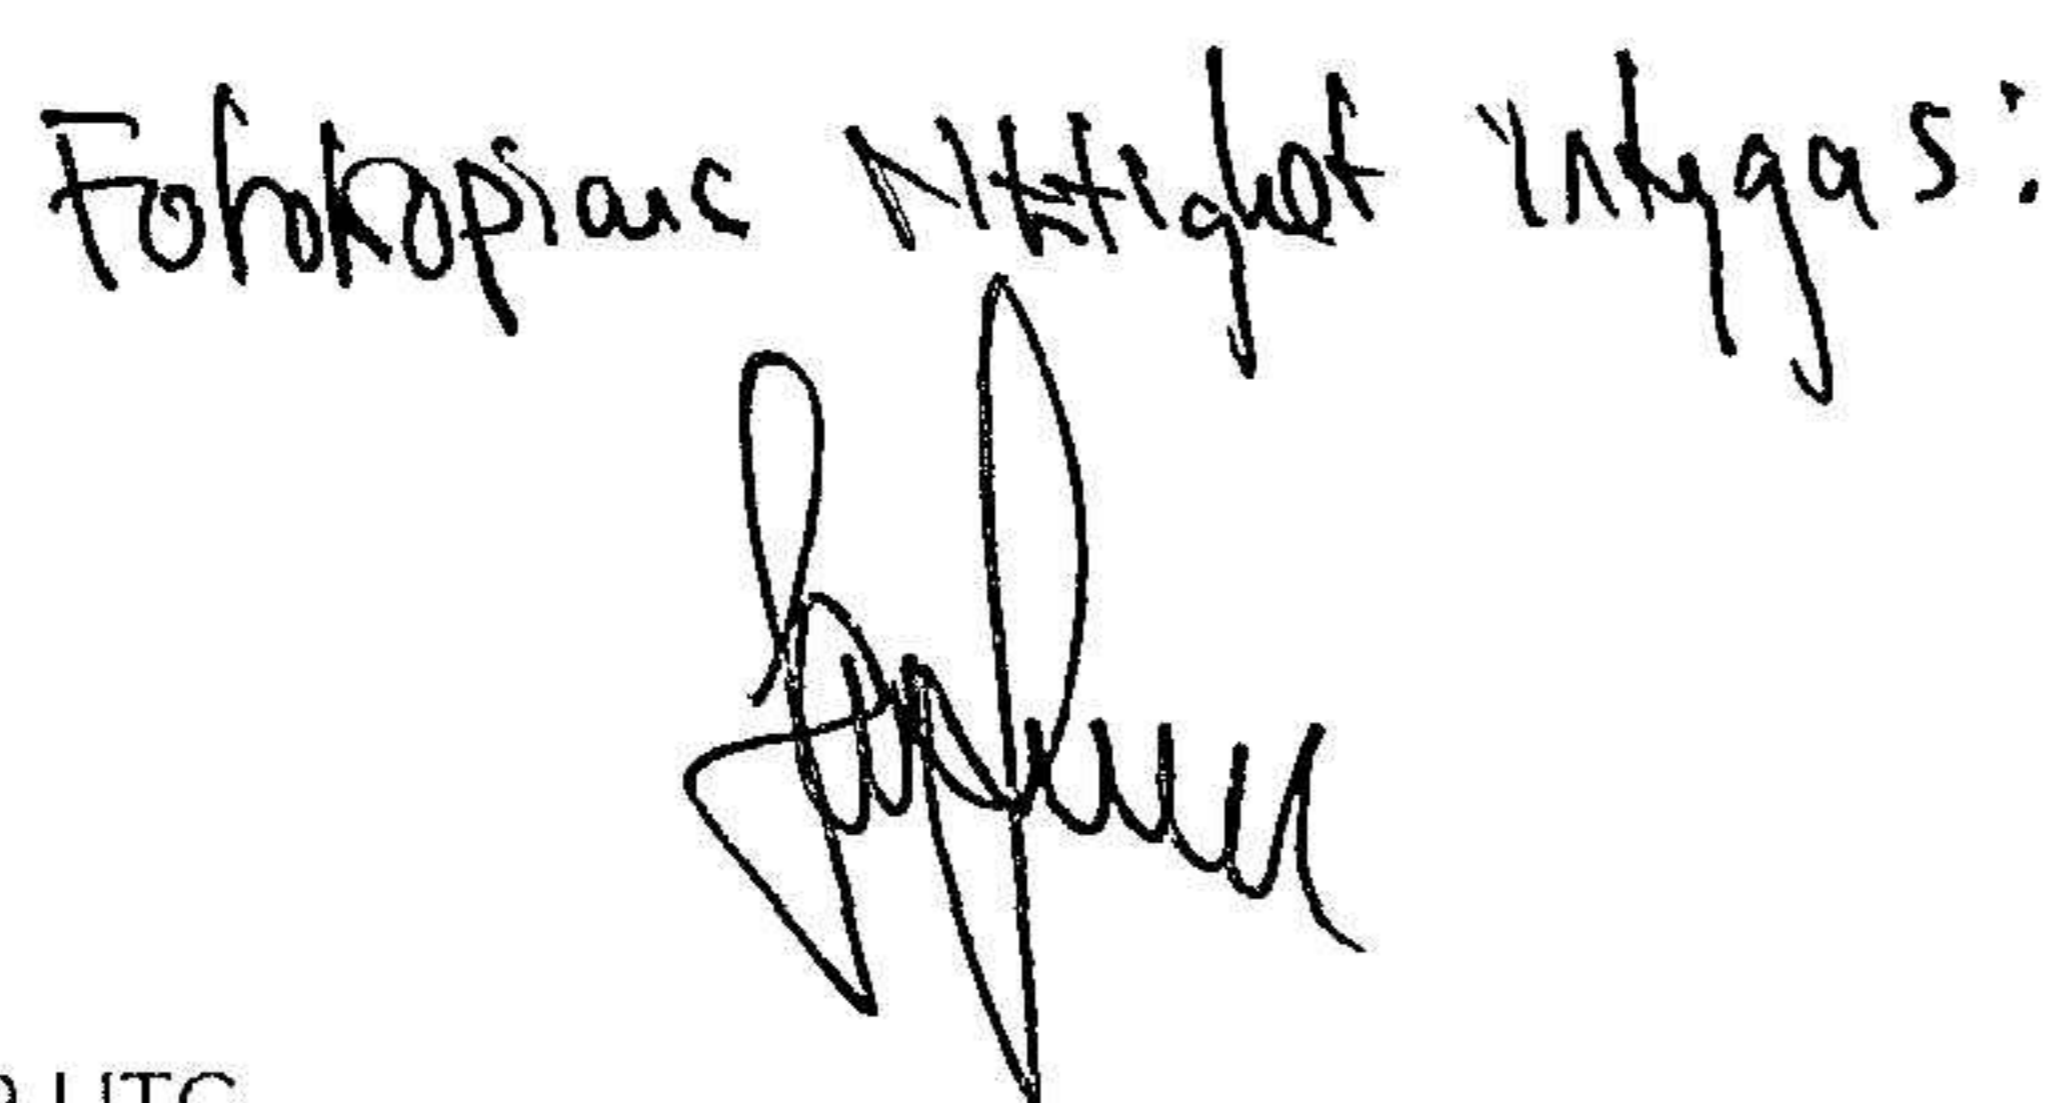 Fotokopians riktighet intygas:
UTC